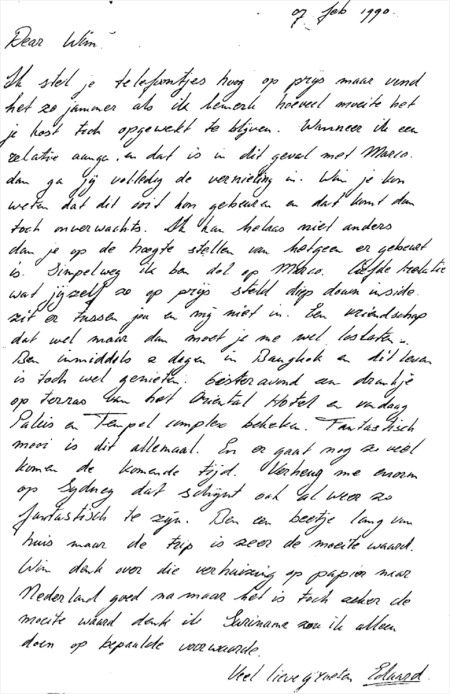 07 feb 1990.
Dear Wim
Ik stel je telefoontjes hoog op prijs maar vind
het zo jammer als ik bemerk hoeveel moeite het
je kost toch opgewekt te blijven. Wanneer ik een
relatie aanga, en dat is in dit geval met Marco.
dan ga jij volledig de vernieling in. Wim je kon
weten dat dit ooit kon gebeuren en dat komt dan
toch onverwachts. Ik kan helaas niet anders
dan je op de hoogte stellen van hetgeen er gebeurt
is. Simpelweg ik ben dol op Marco. Liefde relatie
wat jijzelf zo op prijs steld diep down inside.
zit er tussen jou en mij niet in. Een vriendschap
dat wel maar dan moet je me wel loslaten.
Ben inmiddels 2 dagen in Bangkok en dit leven
is toch wel genieten. Gisteravond een drankje
op terras van het Oriental Hotel en vandaag
Paleis en Tempel complex bekeken. Fantastisch
mooi is dit allemaal. En er gaat nog zo veel
komen de komende tijd. Verheug me enorm
op Sydney dat schijnt ook al weer zo
fantastisch te zijn. Ben een beetje lang van
huis maar de trip is zeer de moeite waard.
Wim denk over die verhuizing op papier naar
Nederland goed na maar het is toch zeker de
moeite waard denk ik. Suriname zou ik alleen
doen op bepaalde voorwaarde.
Veel lieve groeten Eduard.